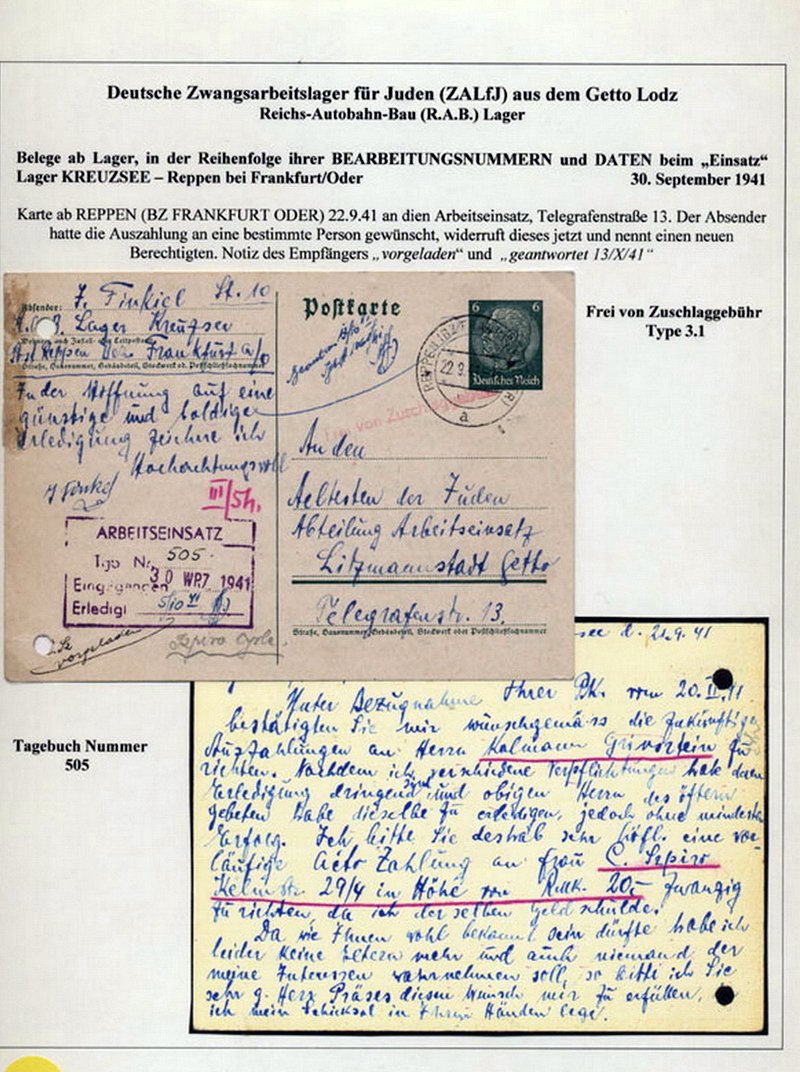 Deutsche Zwangsarbeitslager für Juden (ZALfJ) aus dem Getto Lodz
Reichs-Autobahn-Bau (R.A.B.) Lager
Belege ab Lager, in der Reihenfolge ihrer BEARBEITUNGSNUMMERN und DATEN beim „Einsatz“
Lager KREUZSEE – Reppen bei Frankfurt/Oder 30. September 1941
Karte ab REPPEN (BZ FRANKFURT ODER) 22.9.41 an dien Arbeitseinsatz, Telegrafenstraße 13. Der Absender
hatte die Auszahlung an eine bestimmte Person gewünscht, widerruft dieses jetzt und nennt einen neuen
Berechtigten. Notiz des Empfängers „vorgeladen“ und „geantwortet 13/X/41“
Frei von Zuschlaggebühr
Type 3.1
Absender: J. Finkiel St. 10
Lager Kreuzsee
Reppen Bez. Frankfurt a/o
Straße, Hausnummer, Gebäudeteil, Stockwerk od. Postschließfachnummer
In der Hoffnung auf eine
günstige und baldige
Erledigung zeichne ich
Hochachtungsvoll
J Finkel
III/54.
ARBEITSEINSATZ
Tgb Nr. 505
Eingegangen 30 WRZ 1941
Erledigt 5/10 41
vorgeladen
Postkarte
6 6
Deutsches Reich
REPPEN (BZ FRANKFURT
22.9.
a
Frei von Zuschlaggebühr
An den
Aeltesten der Juden
Abteilung Arbeitseinsatz
Litzmannstadt Getto
Telegrafenstr. 13.
Straße, Hausnummer, Gebäudeteil, Stockwerk oder Postschließfachnummer
Tagebuch Nummer
505
see d. 21.9.41
Unter Bezugnahme Ihrer PK. vom 20.
bestätigten Sie mir wunschgemäss die zukünftige
Auszahlungen an Herrn Kalmann Griwortein zu
richten. Nachdem ich verschiedene Verpflichtungen habe deren
Erledigung dringend und obigen Herrn des öftern
gebeten habe dieselbe zu erledigen, jedoch ohne mindesten
Erfolg. Ich bitte Sie deshalb sehr höfl. eine vor-
läufige Acto Zahlung an Frau C. Szpiro
Kelmstr. 29/4 in Höhe von RMk. 20,- zwanzig
zu richten, da ich derselben Geld schulde.
Da wie Ihnen wohl bekannt sein dürfte habe ich
leider keine Eltern mehr und auch niemand der
meine Interessen wahrnehmen soll, so bitte ich Sie
sehr g. Herr Präses diesen Wunsch mir zu erfüllen, da
ich mein Schicksal in Ihren Händen lege.